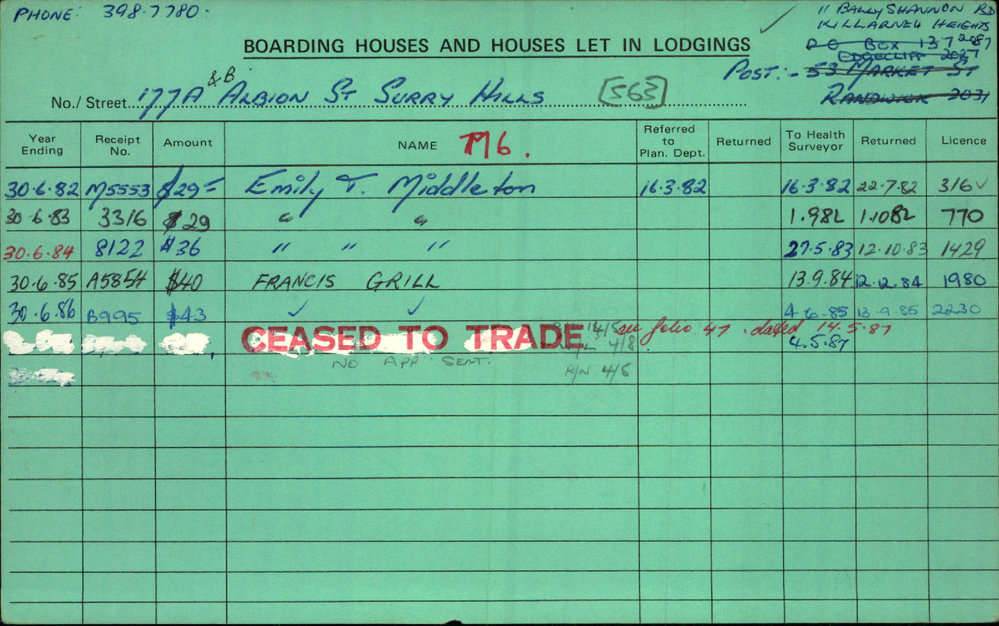 PHONE: 398-7780.
11 BALLYSHANNON RD
KILLARNEY HEIGHTS
2087
P O BOX 137
EDGECLIFF 2027
BOARDING HOUSES AND HOUSES LET IN LODGINGS
POST:- 53 MARKET ST
RANDWICK 2031
&B
No./ Street 177A ALBION ST SURRY HILLS [563]
Year Ending Receipt No. Amount NAME M6. Referred to Plan. Dept. Returned To Health Surveyor Returned Licence
30.6.82 M5553 $29= Emily T. Middleton 16.3.82 16.3.82 22.7.82 316
30.6.83 3316 $29 " " 1.982 1.1082 770
30.6.84 8122 $36 " " " 27.5.83 12.10.83 1429
30.6.85 A5854 $40 FRANCIS GRILL 13.9.84 12.12.84 1980
30.6.86 B995 $43 4.6.85 13.9.85 2230
CEASED TO TRADE 14/5 see folio 47. dated 14.5.87
4/8 4.5.87
NO APP SENT.
P/N 4/5